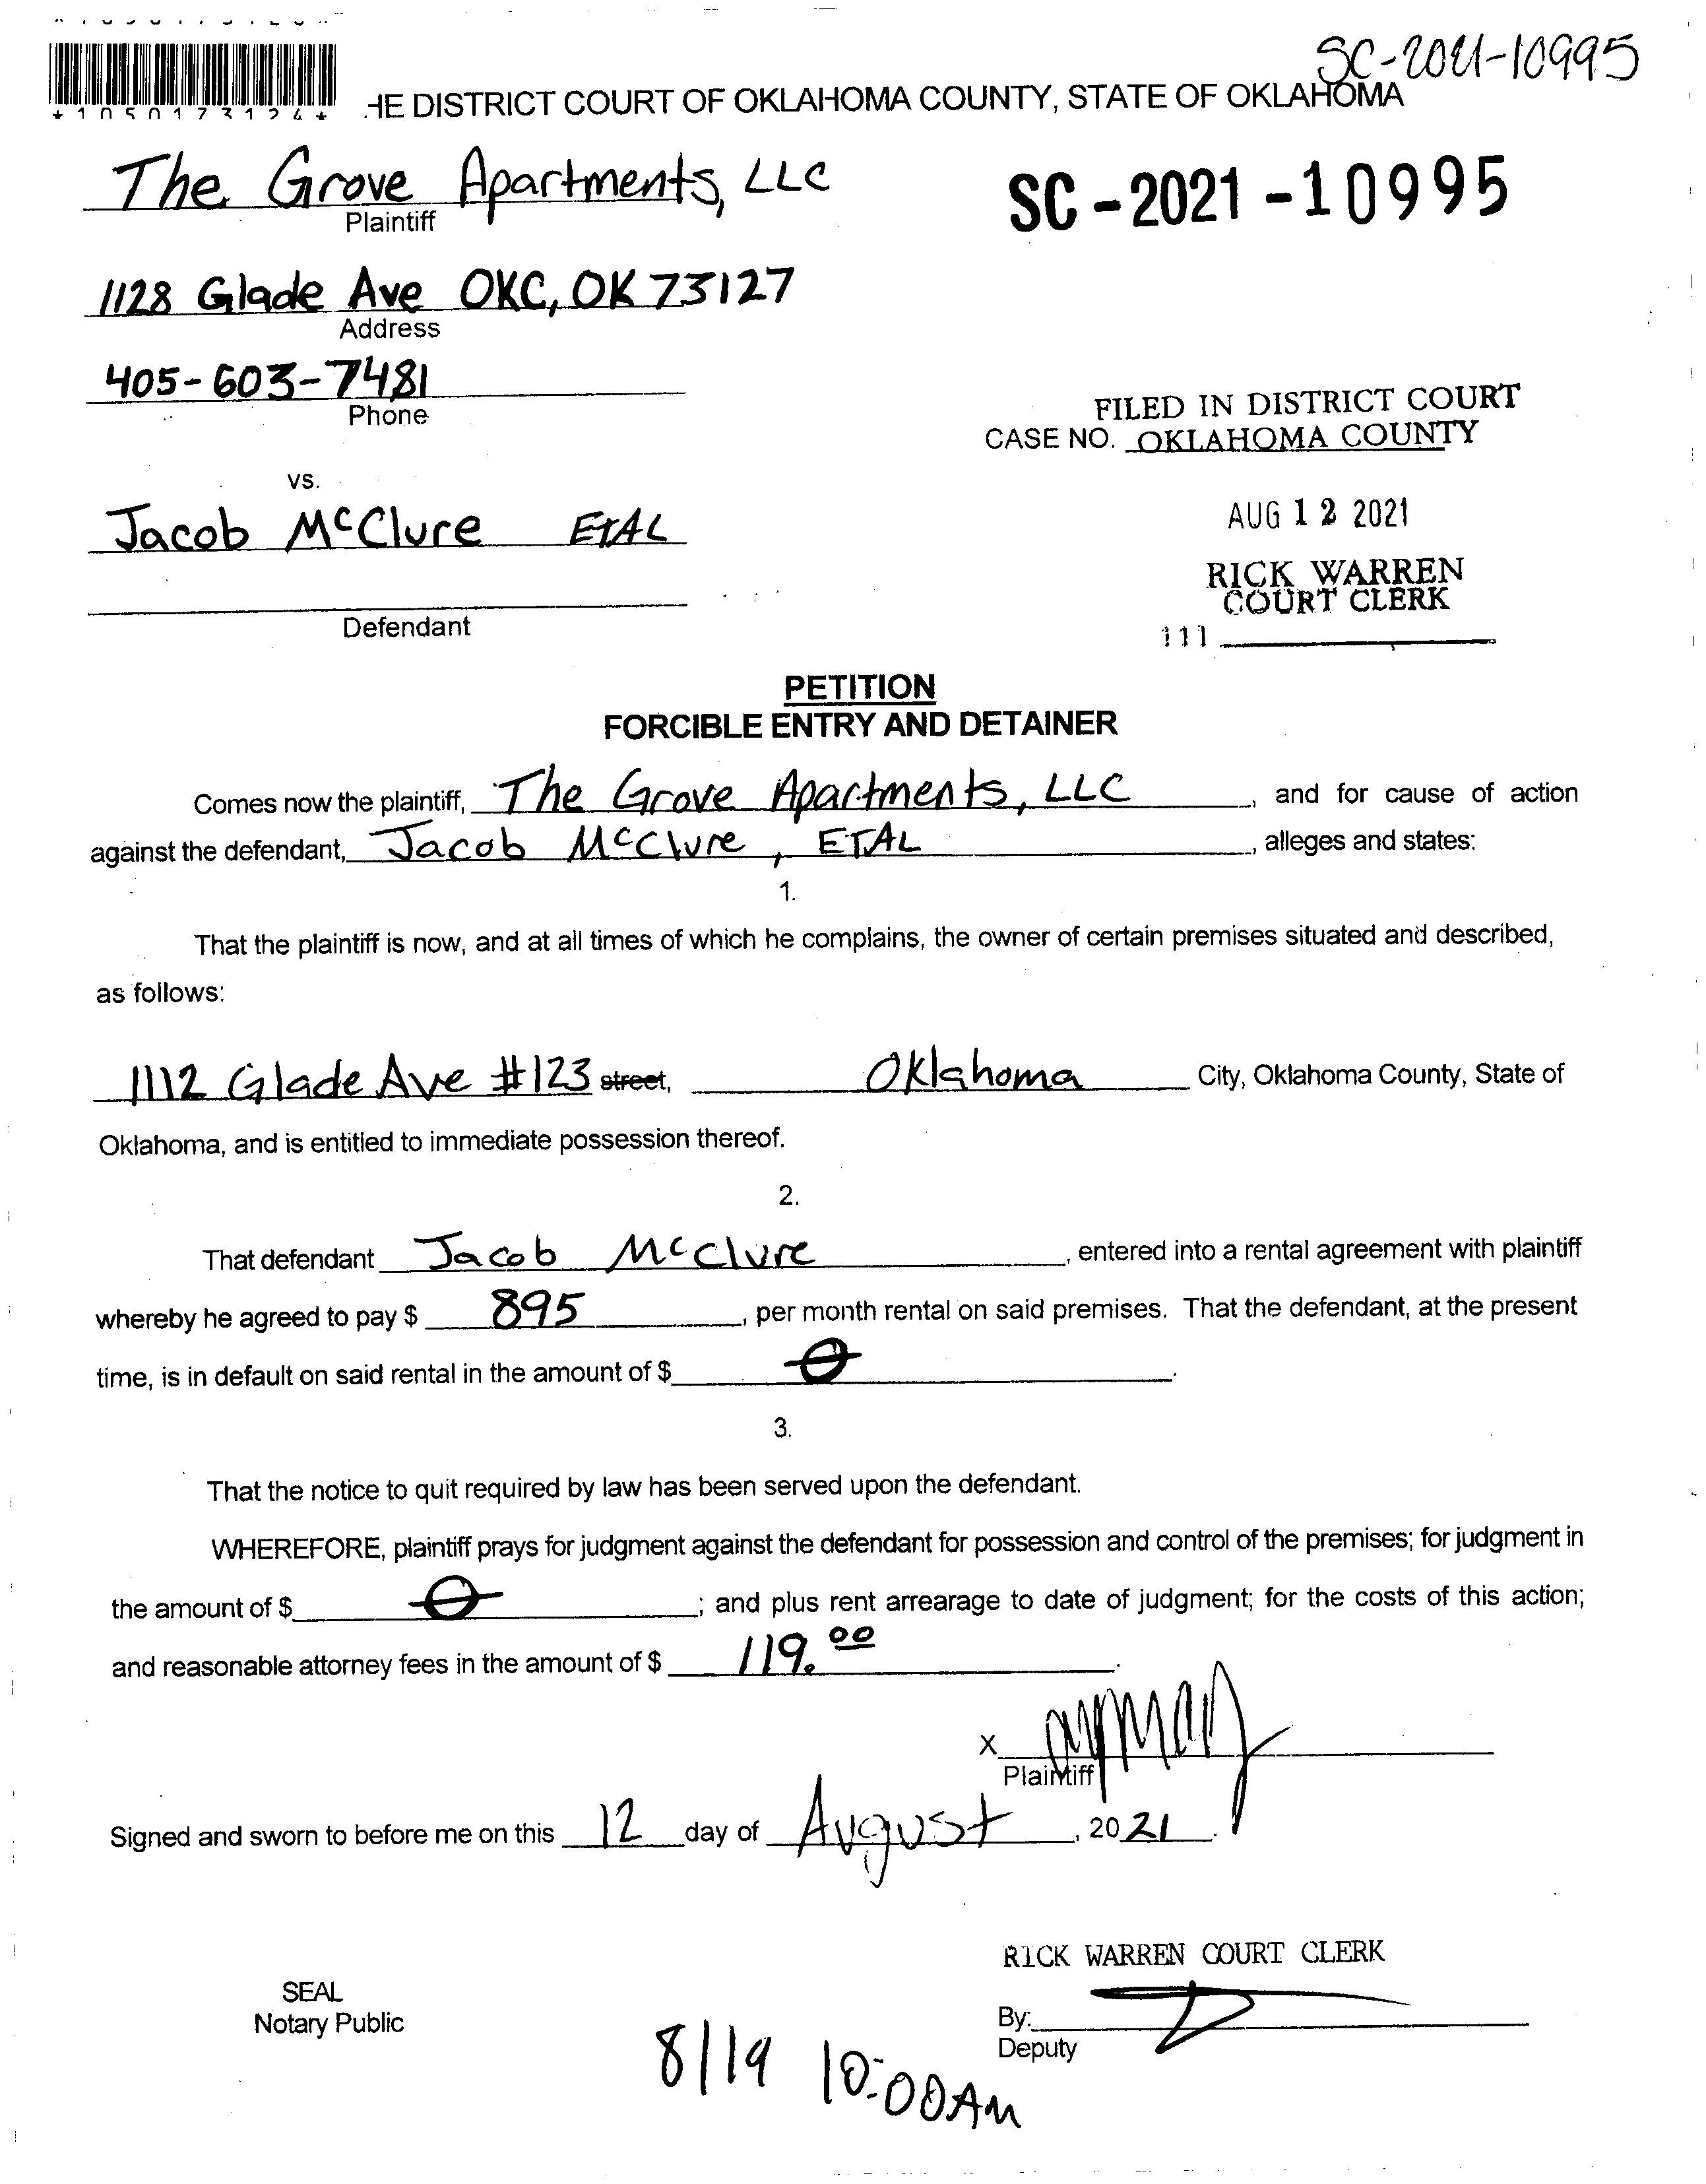 SC-2021-10995
*1050173124*
HE DISTRICT COURT OF OKLAHOMA COUNTY, STATE OF OKLAHOMA
The Grove Apartments, LLC
Plaintiff
SC-2021-10995
1128 Glade Ave OKC, OK 73127
Address
405-603-7481
Phone
FILED IN DISTRICT COURT
CASE NO. OKLAHOMA COUNTY
vs.
AUG 12 2021
Jacob McClure ETAL
RICK WARREN
COURT CLERK
Defendant
111
PETITION
FORCIBLE ENTRY AND DETAINER
Comes now the plaintiff, The Grove Apartments, LLC, and for cause of action
against the defendant, Jacob McClure, ETAL, alleges and states:
1.
That the plaintiff is now, and at all times of which he complains, the owner of certain premises situated and described,
as follows:
1112 Glade Ave #123 street, Oklahoma City, Oklahoma County, State of
Oklahoma, and is entitled to immediate possession thereof.
2.
That defendant Jacob McClure, entered into a rental agreement with plaintiff
whereby he agreed to pay $ 895, per month rental on said premises. That the defendant, at the present
time, is in default on said rental in the amount of $ 0.
3.
That the notice to quit required by law has been served upon the defendant.
WHEREFORE, plaintiff prays for judgment against the defendant for possession and control of the premises; for judgment in
the amount of $ 0; and plus rent arrearage to date of judgment; for the costs of this action;
and reasonable attorney fees in the amount of $ 119.00.
X
Plaintiff
Signed and sworn to before me on this 12 day of August, 2021.
RICK WARREN COURT CLERK
SEAL
Notary Public
By:
Deputy
8/19 10:00AM